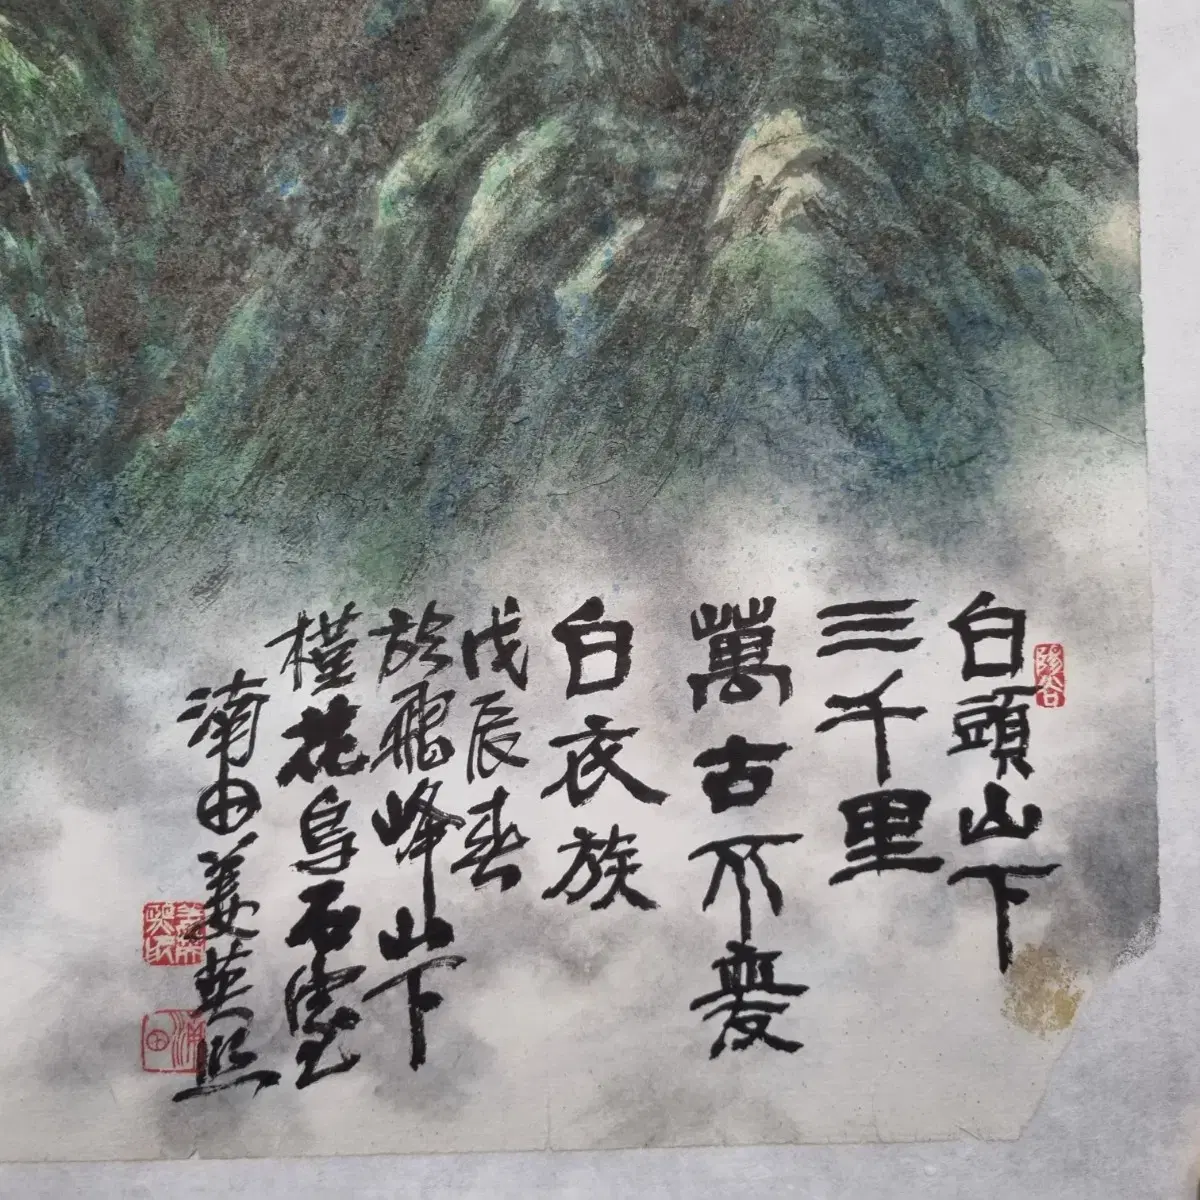 白頭山下
三千里
萬古不變
白衣族
戊辰春
於 峰山下
槿花 石室
浦田姜英